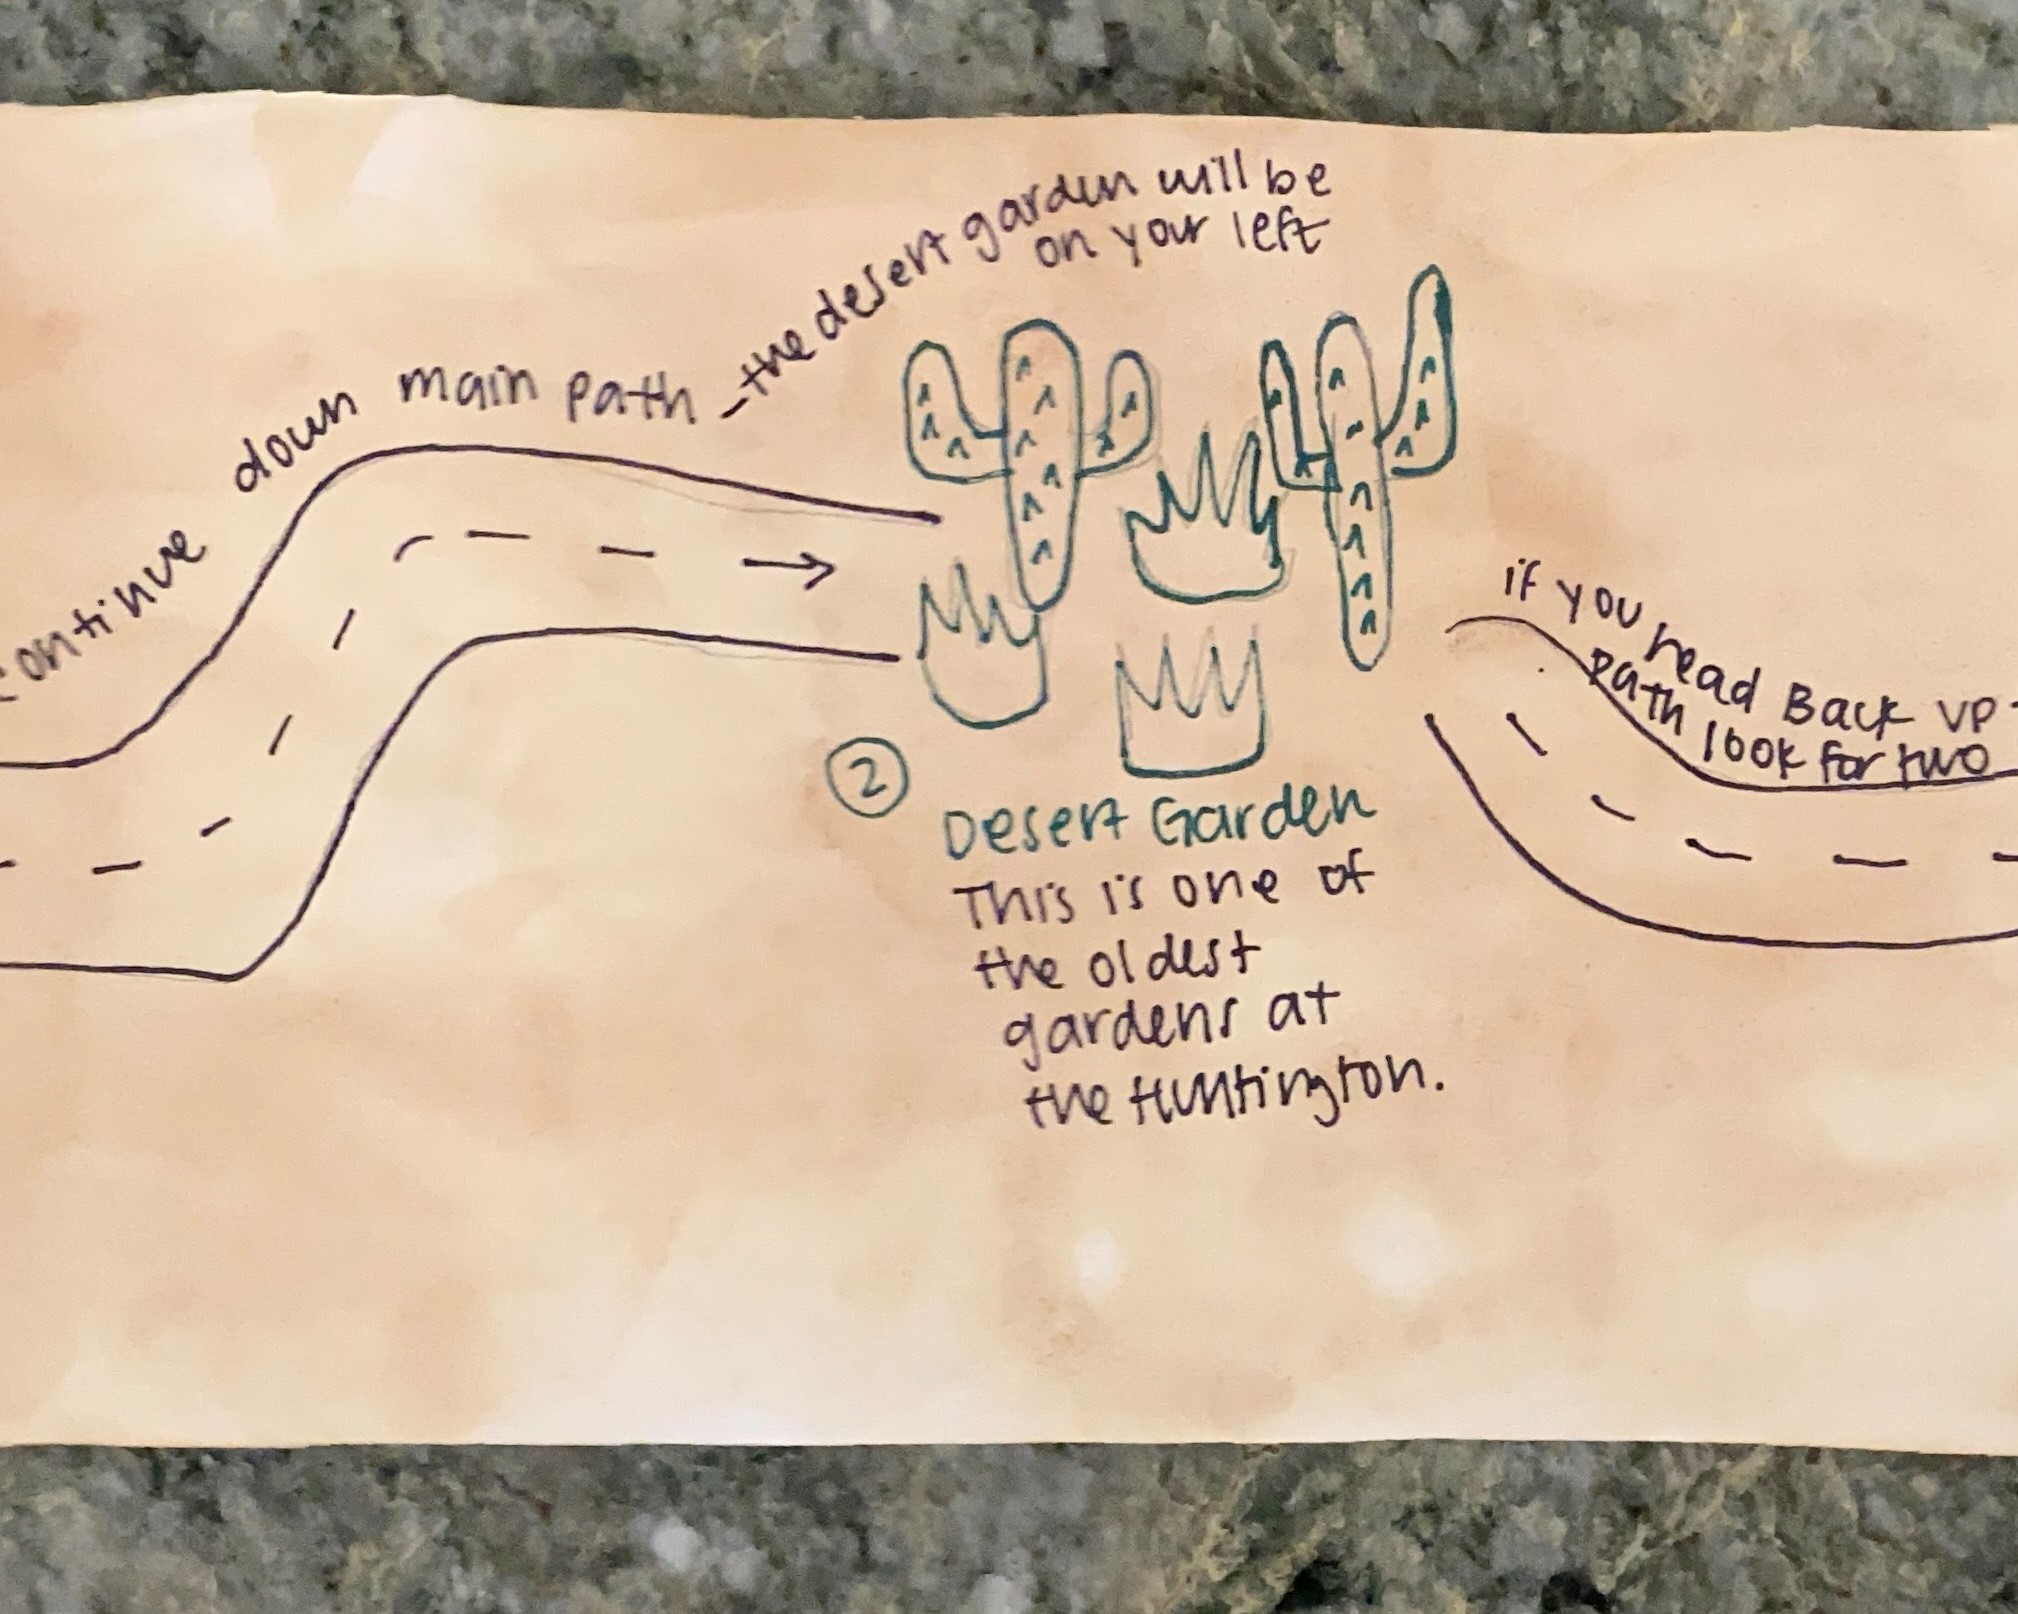 continue down main path - the desert garden will be
on your left
2
Desert Garden
This is one of
the oldest
gardens at
the Huntington.
if you head Back up
path look for two